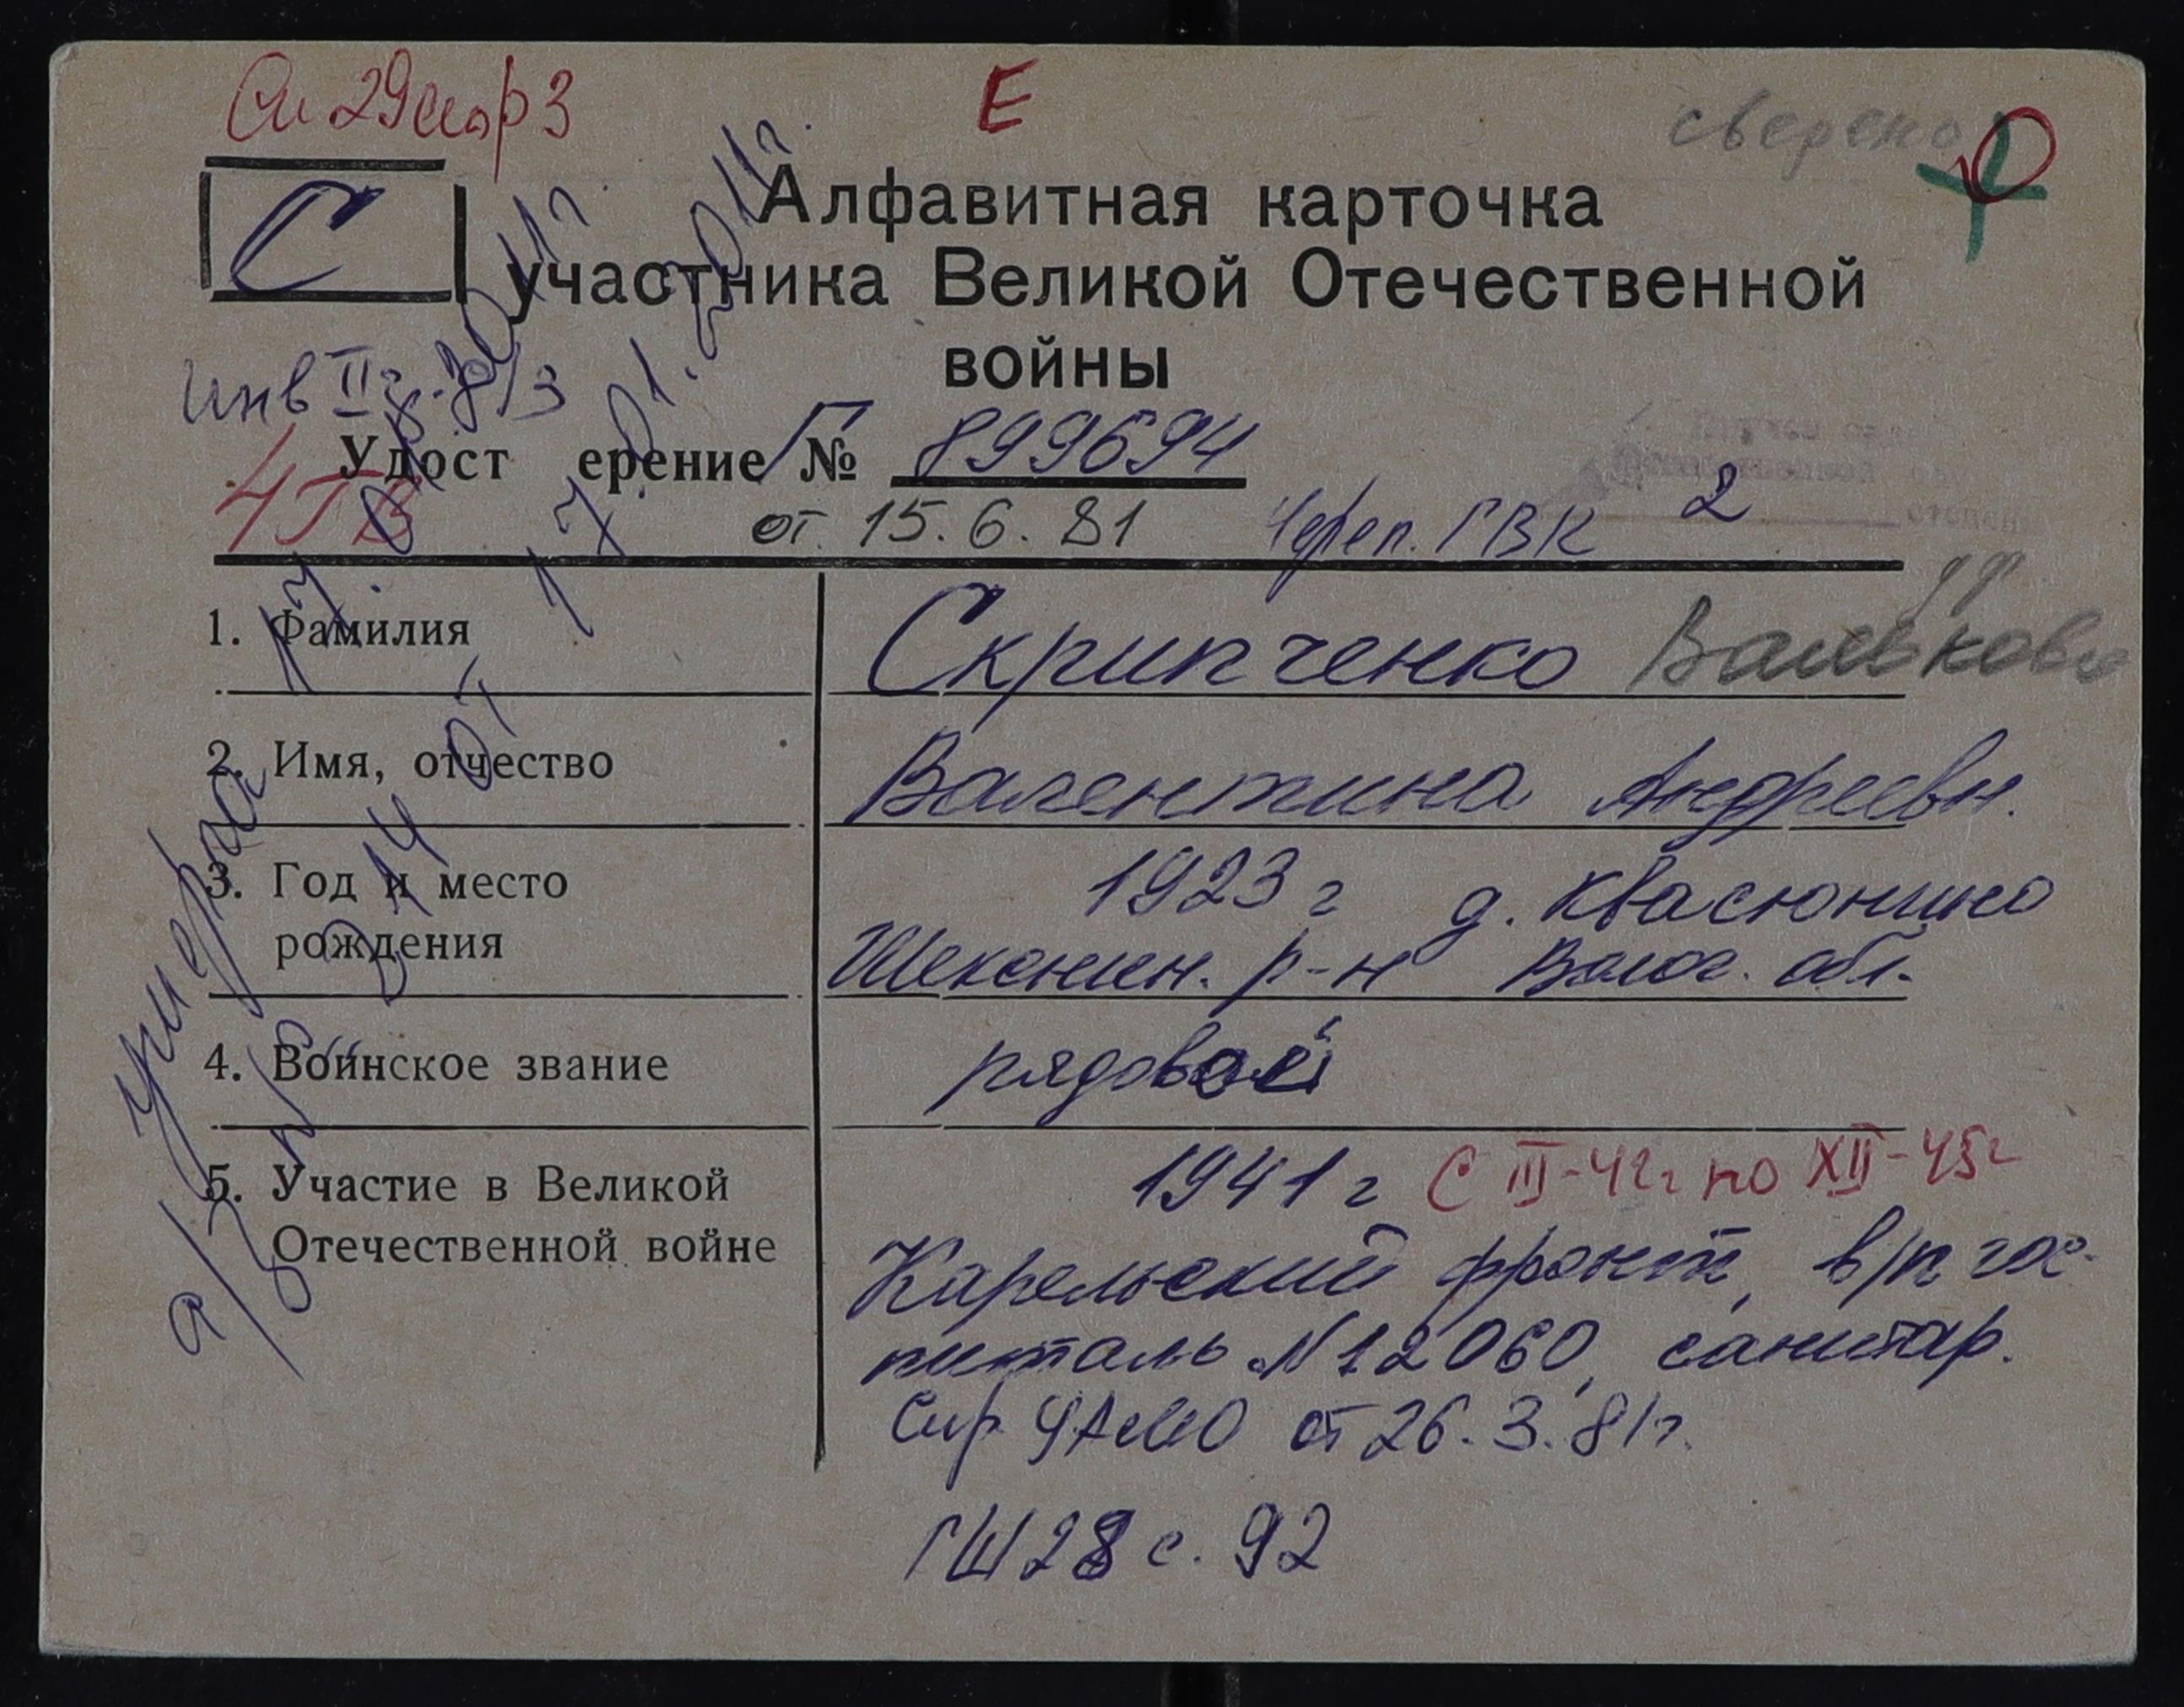 Е
сверено
С
Алфавитная карточка
участника Великой Отечественной
войны
Инв II г.
Удост ерение Г № 899694
4ТВ
от 15.6.81 Череп. ГВК 2
1. Фамилия Скрипченко Валькова
2. Имя, отчество Валентина Андреевн.
3. Год и место
рождения
1923 г д. Квасюнино
Шекснин. р-н Волог. обл.
4. Воинское звание рядовой
5. Участие в Великой
Отечественной войне
1941 г С III-42г по XII-45г
Карельский фронт, в/п гос-
питаль №2060, санитар.
Спр ЦАМО от 26.3.81г.
ГШ 28 с. 92
умерла
а/з № 214 от 17.01.2011г
17.01.2011г.